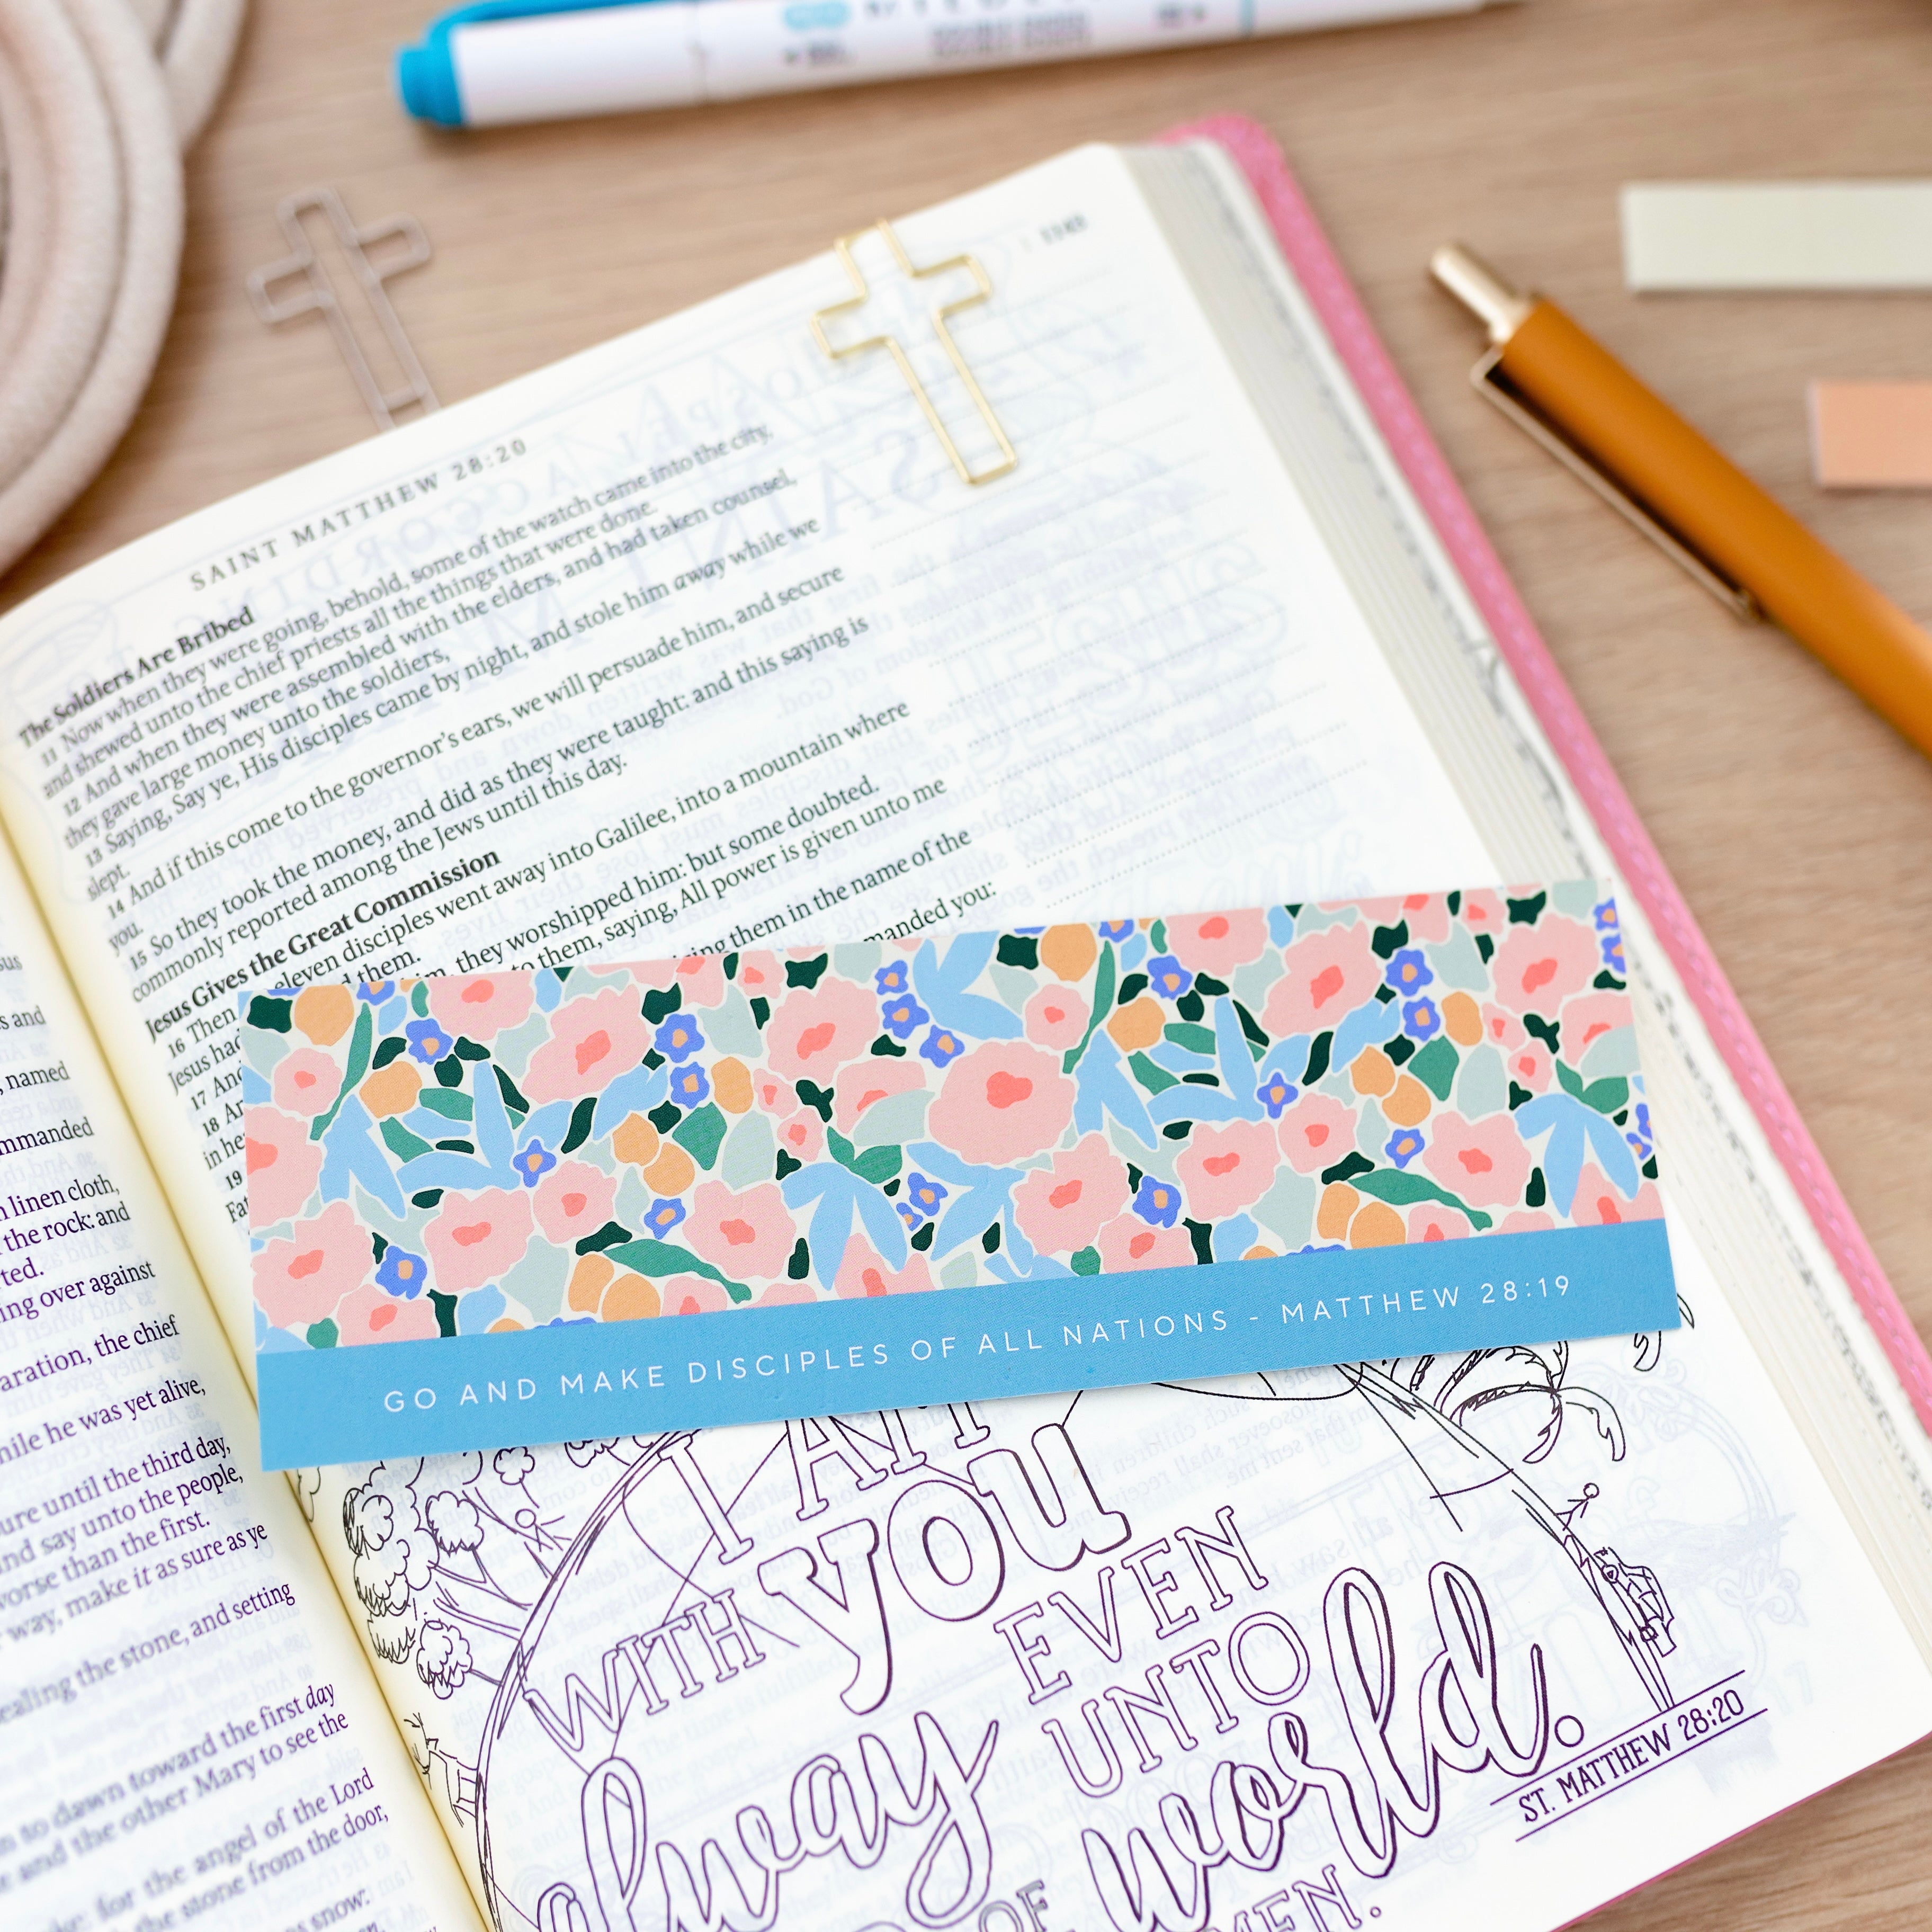 SAINT MATTHEW 28:20
1143
The Soldiers Are Bribed
11 Now when they were going, behold, some of the watch came into the city,
and shewed unto the chief priests all the things that were done.
12 And when they were assembled with the elders, and had taken counsel,
they gave large money unto the soldiers,
13 Saying, Say ye, His disciples came by night, and stole him away while we
slept.
14 And if this come to the governor's ears, we will persuade him, and secure
you.
15 So they took the money, and did as they were taught: and this saying is
commonly reported among the Jews until this day.
Jesus Gives the Great Commission
16 Then eleven disciples went away into Galilee, into a mountain where
Jesus had them.
17 And him, they worshipped him: but some doubted.
18 to them, saying, All power is given unto me
in
19 them in the name of the
manded you:
GO AND MAKE DISCIPLES OF ALL NATIONS - MATTHEW 28:19
I AM
WITH you
alway
EVEN
UNTO
OF world.
ST. MATTHEW 28:20
and
, named
mmanded
linen cloth,
the rock: and
ing over against
aration, the chief
while he was yet alive,
ure until the third day,
and say unto the people,
worse than the first.
way, make it as sure as ye
sealing the stone, and setting
to dawn toward the first day
and the other Mary to see the
for the angel of the Lord
the stone from the door,
snow: